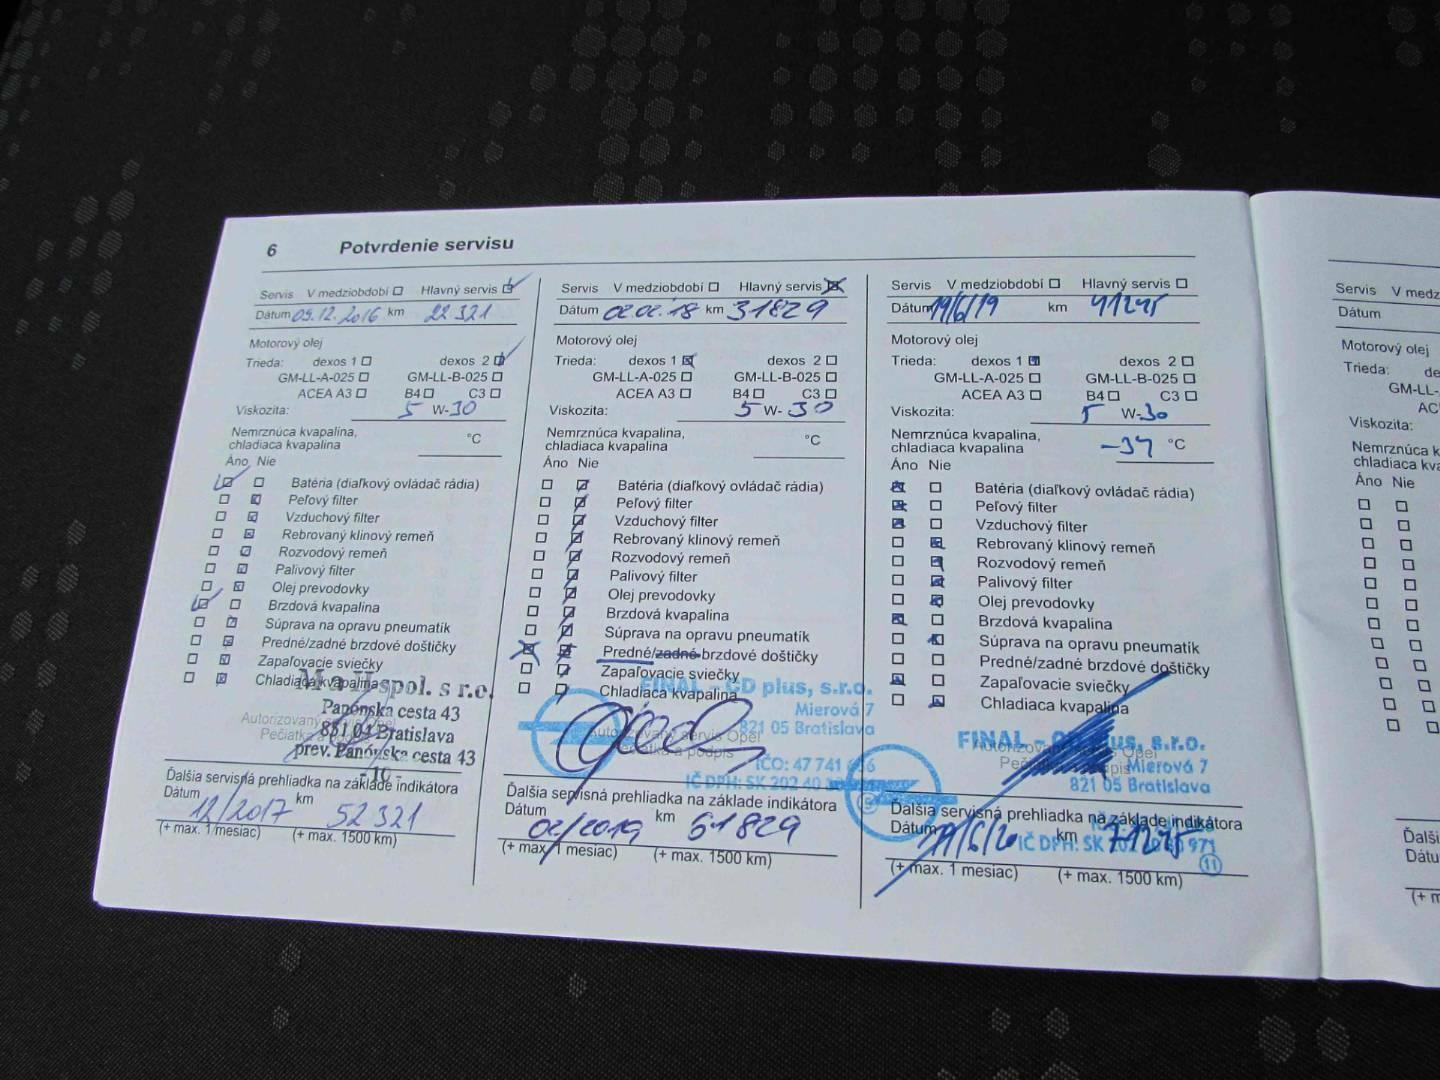 6 Potvrdenie servisu
Servis V medziobdobí Hlavný servis
Dátum 05.12.2016 km 22321
Motorový olej
Trieda: dexos 1 dexos 2
GM-LL-A-025 GM-LL-B-025
ACEA A3 B4 C3
Viskozita: 5 W-30
Nemrznúca kvapalina,
chladiaca kvapalina °C
Áno Nie
Batéria (diaľkový ovládač rádia)
Peľový filter
Vzduchový filter
Rebrovaný klinový remeň
Rozvodový remeň
Palivový filter
Olej prevodovky
Brzdová kvapalina
Súprava na opravu pneumatík
Predné/zadné brzdové doštičky
Zapaľovacie sviečky
Chladiaca kvapalina
spol. s r.o.
Panónska cesta 43
851 04 Bratislava
prev. Panónska cesta 43
- 10 -
Autorizovaný servis Opel
Pečiatka a podpis
Ďalšia servisná prehliadka na základe indikátora
Dátum 12/2017 km 52321
(+ max. 1 mesiac) (+ max. 1500 km)
Servis V medziobdobí Hlavný servis
Dátum 02.02.18 km 31829
Motorový olej
Trieda: dexos 1 dexos 2
GM-LL-A-025 GM-LL-B-025
ACEA A3 B4 C3
Viskozita: 5 W-30
Nemrznúca kvapalina,
chladiaca kvapalina °C
Áno Nie
Batéria (diaľkový ovládač rádia)
Peľový filter
Vzduchový filter
Rebrovaný klinový remeň
Rozvodový remeň
Palivový filter
Olej prevodovky
Brzdová kvapalina
Súprava na opravu pneumatík
Predné/zadné brzdové doštičky
Zapaľovacie sviečky
Chladiaca kvapalina
FINAL - CD plus, s.r.o.
Mierová 7
821 05 Bratislava
Autorizovaný servis Opel
Pečiatka a podpis
IČO: 47 741
IČ DPH: SK 202 40
Ďalšia servisná prehliadka na základe indikátora
Dátum 02/2019 km 61829
(+ max. 1 mesiac) (+ max. 1500 km)
Servis V medziobdobí Hlavný servis
Dátum 19/6/19 km 41245
Motorový olej
Trieda: dexos 1 dexos 2
GM-LL-A-025 GM-LL-B-025
ACEA A3 B4 C3
Viskozita: 5 W-30
Nemrznúca kvapalina,
chladiaca kvapalina -37 °C
Áno Nie
Batéria (diaľkový ovládač rádia)
Peľový filter
Vzduchový filter
Rebrovaný klinový remeň
Rozvodový remeň
Palivový filter
Olej prevodovky
Brzdová kvapalina
Súprava na opravu pneumatík
Predné/zadné brzdové doštičky
Zapaľovacie sviečky
Chladiaca kvapalina
FINAL - CD plus, s.r.o.
Autorizovaný servis Opel
Pečiatka a podpis
Mierová 7
821 05 Bratislava
Ďalšia servisná prehliadka na základe indikátora
Dátum 19/6/20 km 71245
IČ DPH: SK 202 40 80 971
11
(+ max. 1 mesiac) (+ max. 1500 km)
Servis V medz
Dátum
Motorový olej
Trieda: de
GM-LL-
AC
Viskozita:
Nemrznúca k
chladiaca kva
Áno Nie
Ďalši
Dátu
(+ m